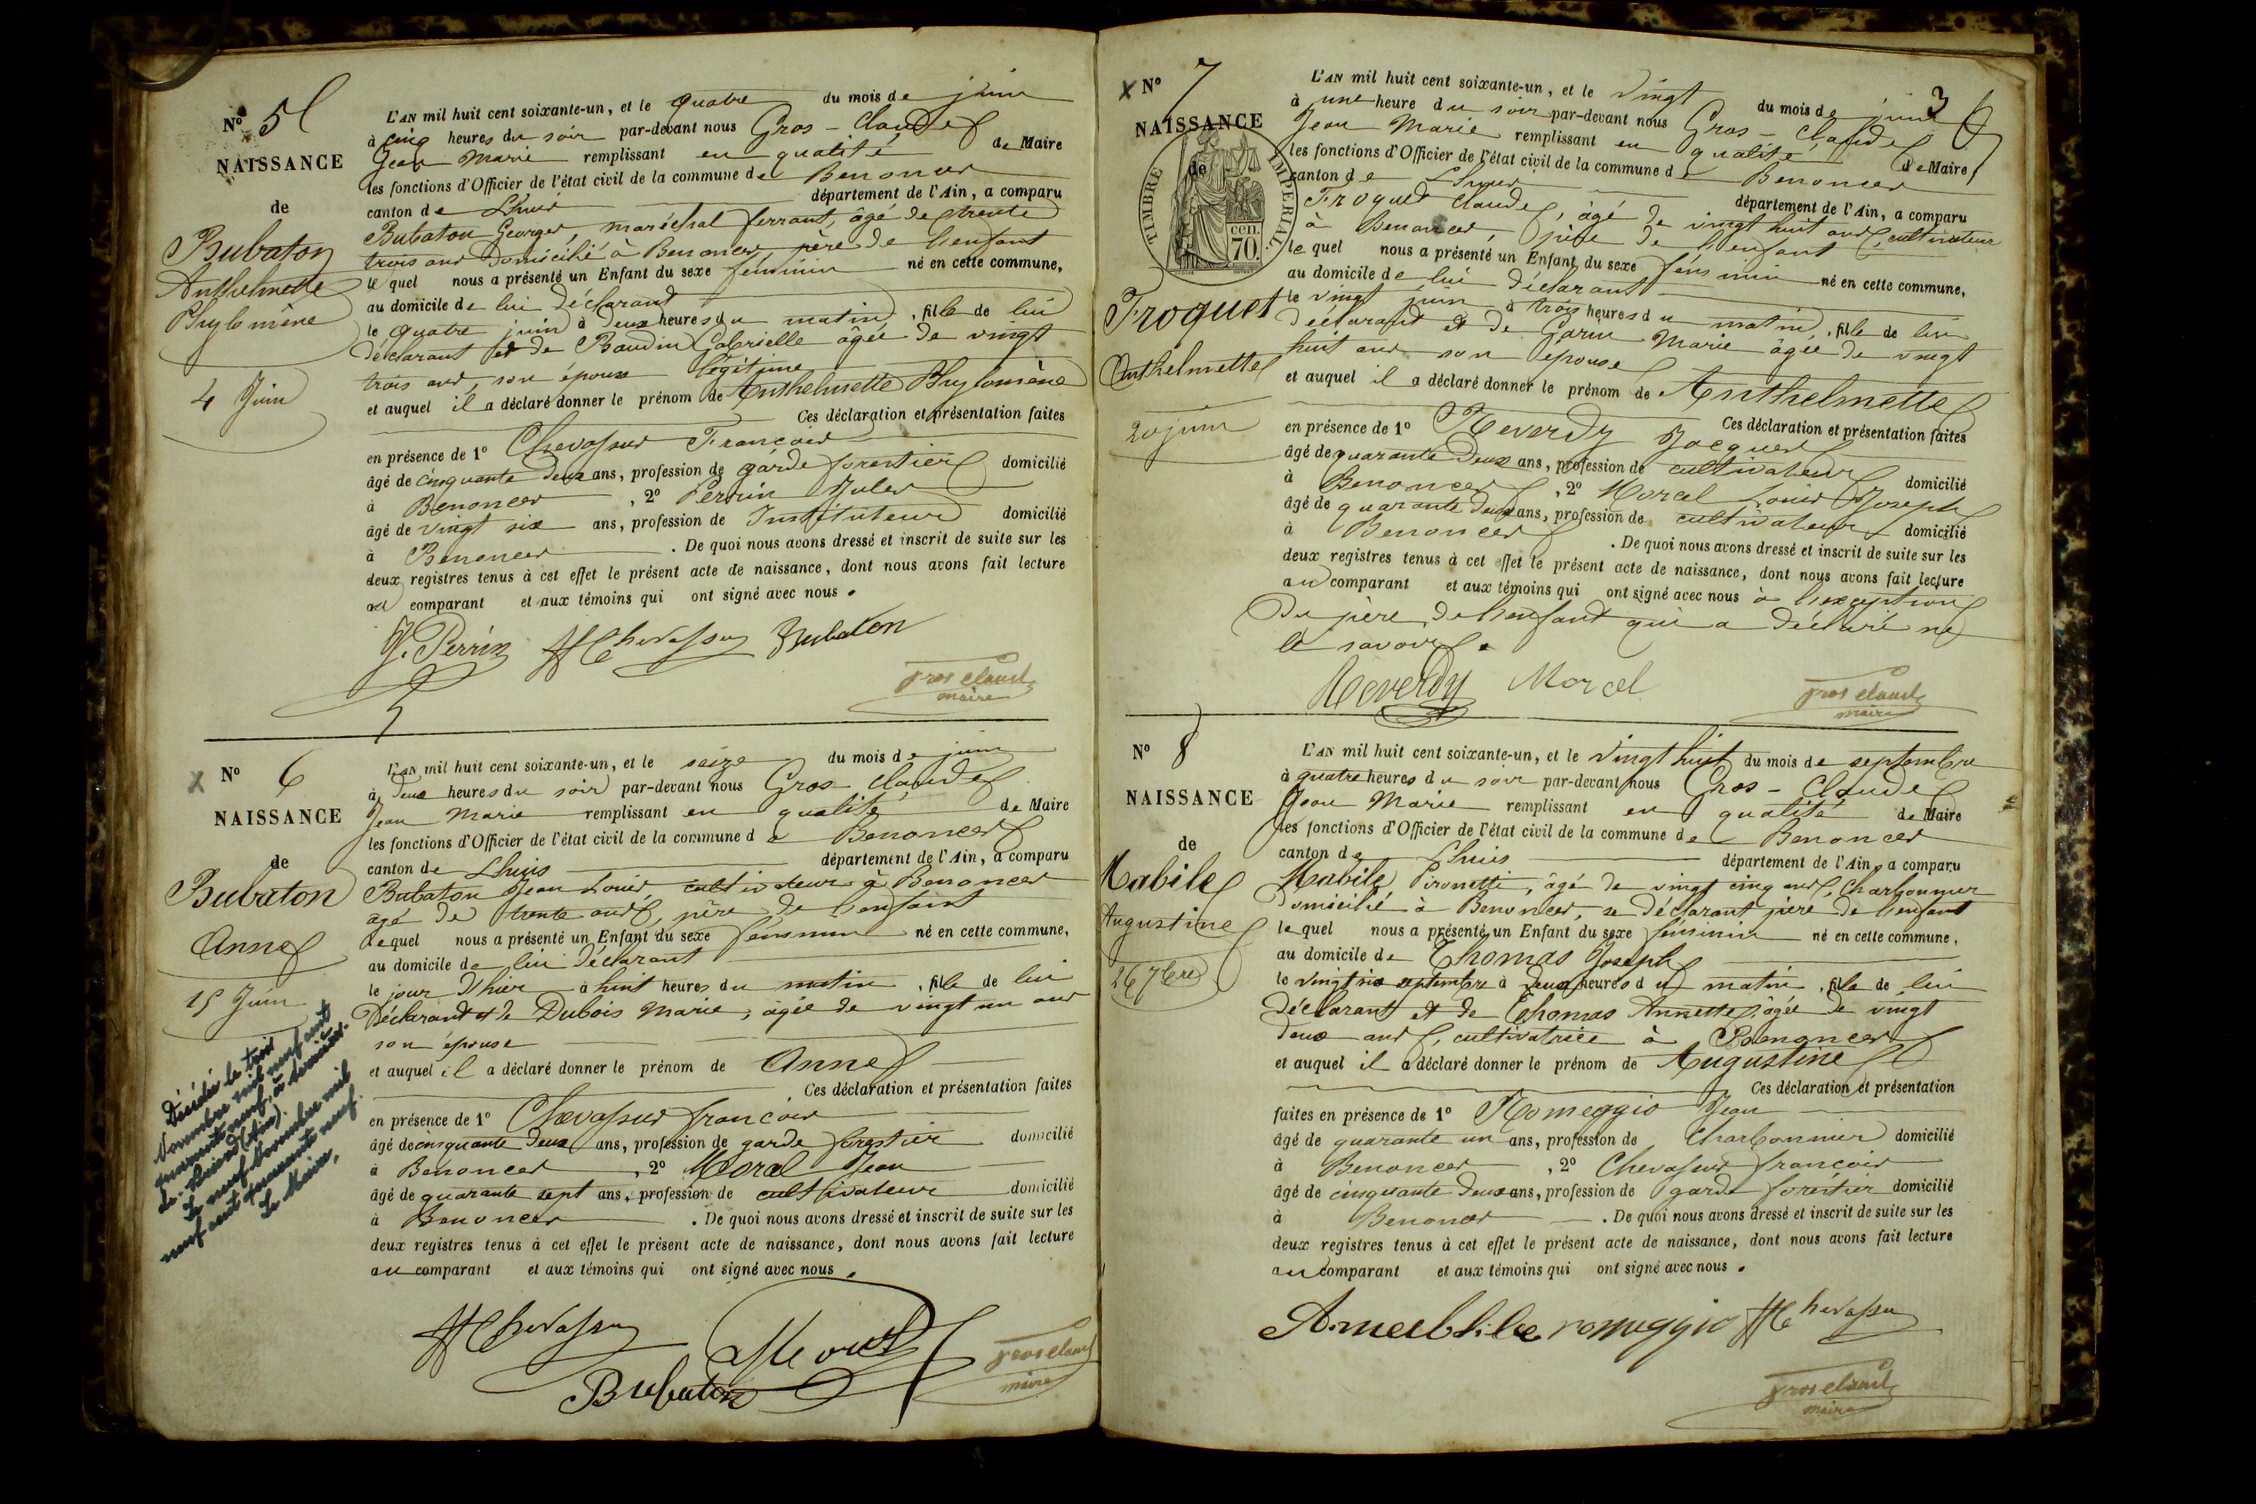 N° 5
NAISSANCE
de
Bubaton
Anthelmette
Phylomène
4 Juin
L'AN mil huit cent soixante-un, et le quatre du mois de juin
à cinq heures du soir par-devant nous Gros-Claude
Jean Marie remplissant en qualité de Maire
les fonctions d'Officier de l'état civil de la commune de Benonces
canton de Lhuis département de l'Ain, a comparu
Bubaton Georges, maréchal ferrant, âgé de trente
trois ans domicilié à Benonces, père de l'enfant
lequel nous a présenté un Enfant du sexe féminin né en cette commune,
au domicile de lui déclarant
le quatre juin à deux heures du matin, fille de lui
déclarant et de Baudin Gabrielle âgée de vingt
trois ans, son épouse légitime
et auquel il a déclaré donner le prénom de Anthelmette Phylomène
Ces déclaration et présentation faites
en présence de 1° Chevassus François
âgé de cinquante deux ans, profession de garde forestier domicilié
à Benonces, 2° Perrin Jules
âgé de vingt six ans, profession de Instituteur domicilié
à Benonces. De quoi nous avons dressé et inscrit de suite sur les
deux registres tenus à cet effet le présent acte de naissance, dont nous avons fait lecture
au comparant et aux témoins qui ont signé avec nous.
J. Perrin Chevassus Bubaton
gros claude
maire
N° 6
NAISSANCE
de
Bubaton
Anne
15 Juin
Décédée le trois
Novembre mil neuf cent
quarante neuf, à
Le neuf Novembre mil
neuf cent quarante neuf.
Le Maire,
L'AN mil huit cent soixante-un, et le seize du mois de juin
à deux heures du soir par-devant nous Gros Claude
Jean Marie remplissant en qualité de Maire
les fonctions d'Officier de l'état civil de la commune de Benonces
canton de Lhuis département de l'Ain, a comparu
Bubaton Jean Louis cultivateur à Benonces
agé de trente ans, père de l'enfant
lequel nous a présenté un Enfant du sexe féminin né en cette commune,
au domicile de lui déclarant
le jour d'hier à huit heures du matin, fille de lui
Déclarant et de Dubois Marie, âgée de vingt un ans
son épouse
et auquel il a déclaré donner le prénom de Anne
Ces déclaration et présentation faites
en présence de 1° Chevassus françois
âgé de cinquante deux ans, profession de garde forestier domicilié
à Benonces, 2° Morel Jean
âgé de quarante sept ans, profession de cultivateur domicilié
à Benonces. De quoi nous avons dressé et inscrit de suite sur les
deux registres tenus à cet effet le présent acte de naissance, dont nous avons fait lecture
au comparant et aux témoins qui ont signé avec nous.
Chevassus Morel
Bubaton
gros claude
maire
3
N° 7
NAISSANCE
de
TIMBRE IMPERIAL
70 cen.
Froquet
Anthelmette
20 juin
L'AN mil huit cent soixante-un, et le vingt du mois de juin
à une heure du soir par-devant nous Gros-Claude
Jean Marie remplissant en qualité de Maire
les fonctions d'Officier de l'état civil de la commune de Benonces
canton de Lhuis département de l'Ain, a comparu
Froquet Claude, âgé de vingt huit ans, cultivateur
à Benonces, père de l'enfant
lequel nous a présenté un Enfant du sexe féminin né en cette commune,
au domicile de lui déclarant
le vingt juin à trois heures du matin, fille de lui
déclarant et de Garin Marie âgée de vingt
huit ans son épouse
et auquel il a déclaré donner le prénom de Anthelmette
Ces déclaration et présentation faites
en présence de 1° Reverdy Jacques
âgé de quarante deux ans, profession de cultivateur domicilié
à Benonces, 2° Morcel Louis Joseph
âgé de quarante deux ans, profession de cultivateur domicilié
à Benonces. De quoi nous avons dressé et inscrit de suite sur les
deux registres tenus à cet effet le présent acte de naissance, dont nous avons fait lecture
au comparant et aux témoins qui ont signé avec nous à l'exception
du père de l'enfant qui a déclaré ne
le savoir.
Reverdy Morcel
gros claude
maire
N° 8
NAISSANCE
de
Mabile
Augustine
26 7bre
L'AN mil huit cent soixante-un, et le Vingt huit du mois de septembre
à quatre heures du soir par-devant nous Gros-Claude
Jean Marie remplissant en qualité de Maire
les fonctions d'Officier de l'état civil de la commune de Benonces
canton de Lhuis département de l'Ain, a comparu
Mabile Pironetti, âgé de vingt cinq ans, charbonnier
domicilié à Benonces, se déclarant père de l'enfant
lequel nous a présenté un Enfant du sexe féminin né en cette commune,
au domicile de Thomas Joseph
le vingt six septembre à deux heures du matin, fille de lui
déclarant et de Thomas Annette, âgée de vingt
deux ans, cultivatrice à Benonces
et auquel il a déclaré donner le prénom de Augustine
Ces déclaration et présentation
faites en présence de 1° Romeggio Jean
âgé de quarante un ans, profession de Charbonnier domicilié
à Benonces, 2° Chevassus françois
âgé de cinquante deux ans, profession de garde forestier domicilié
à Benonces. De quoi nous avons dressé et inscrit de suite sur les
deux registres tenus à cet effet le présent acte de naissance, dont nous avons fait lecture
au comparant et aux témoins qui ont signé avec nous.
romeggio Chevassus
gros claude
maire